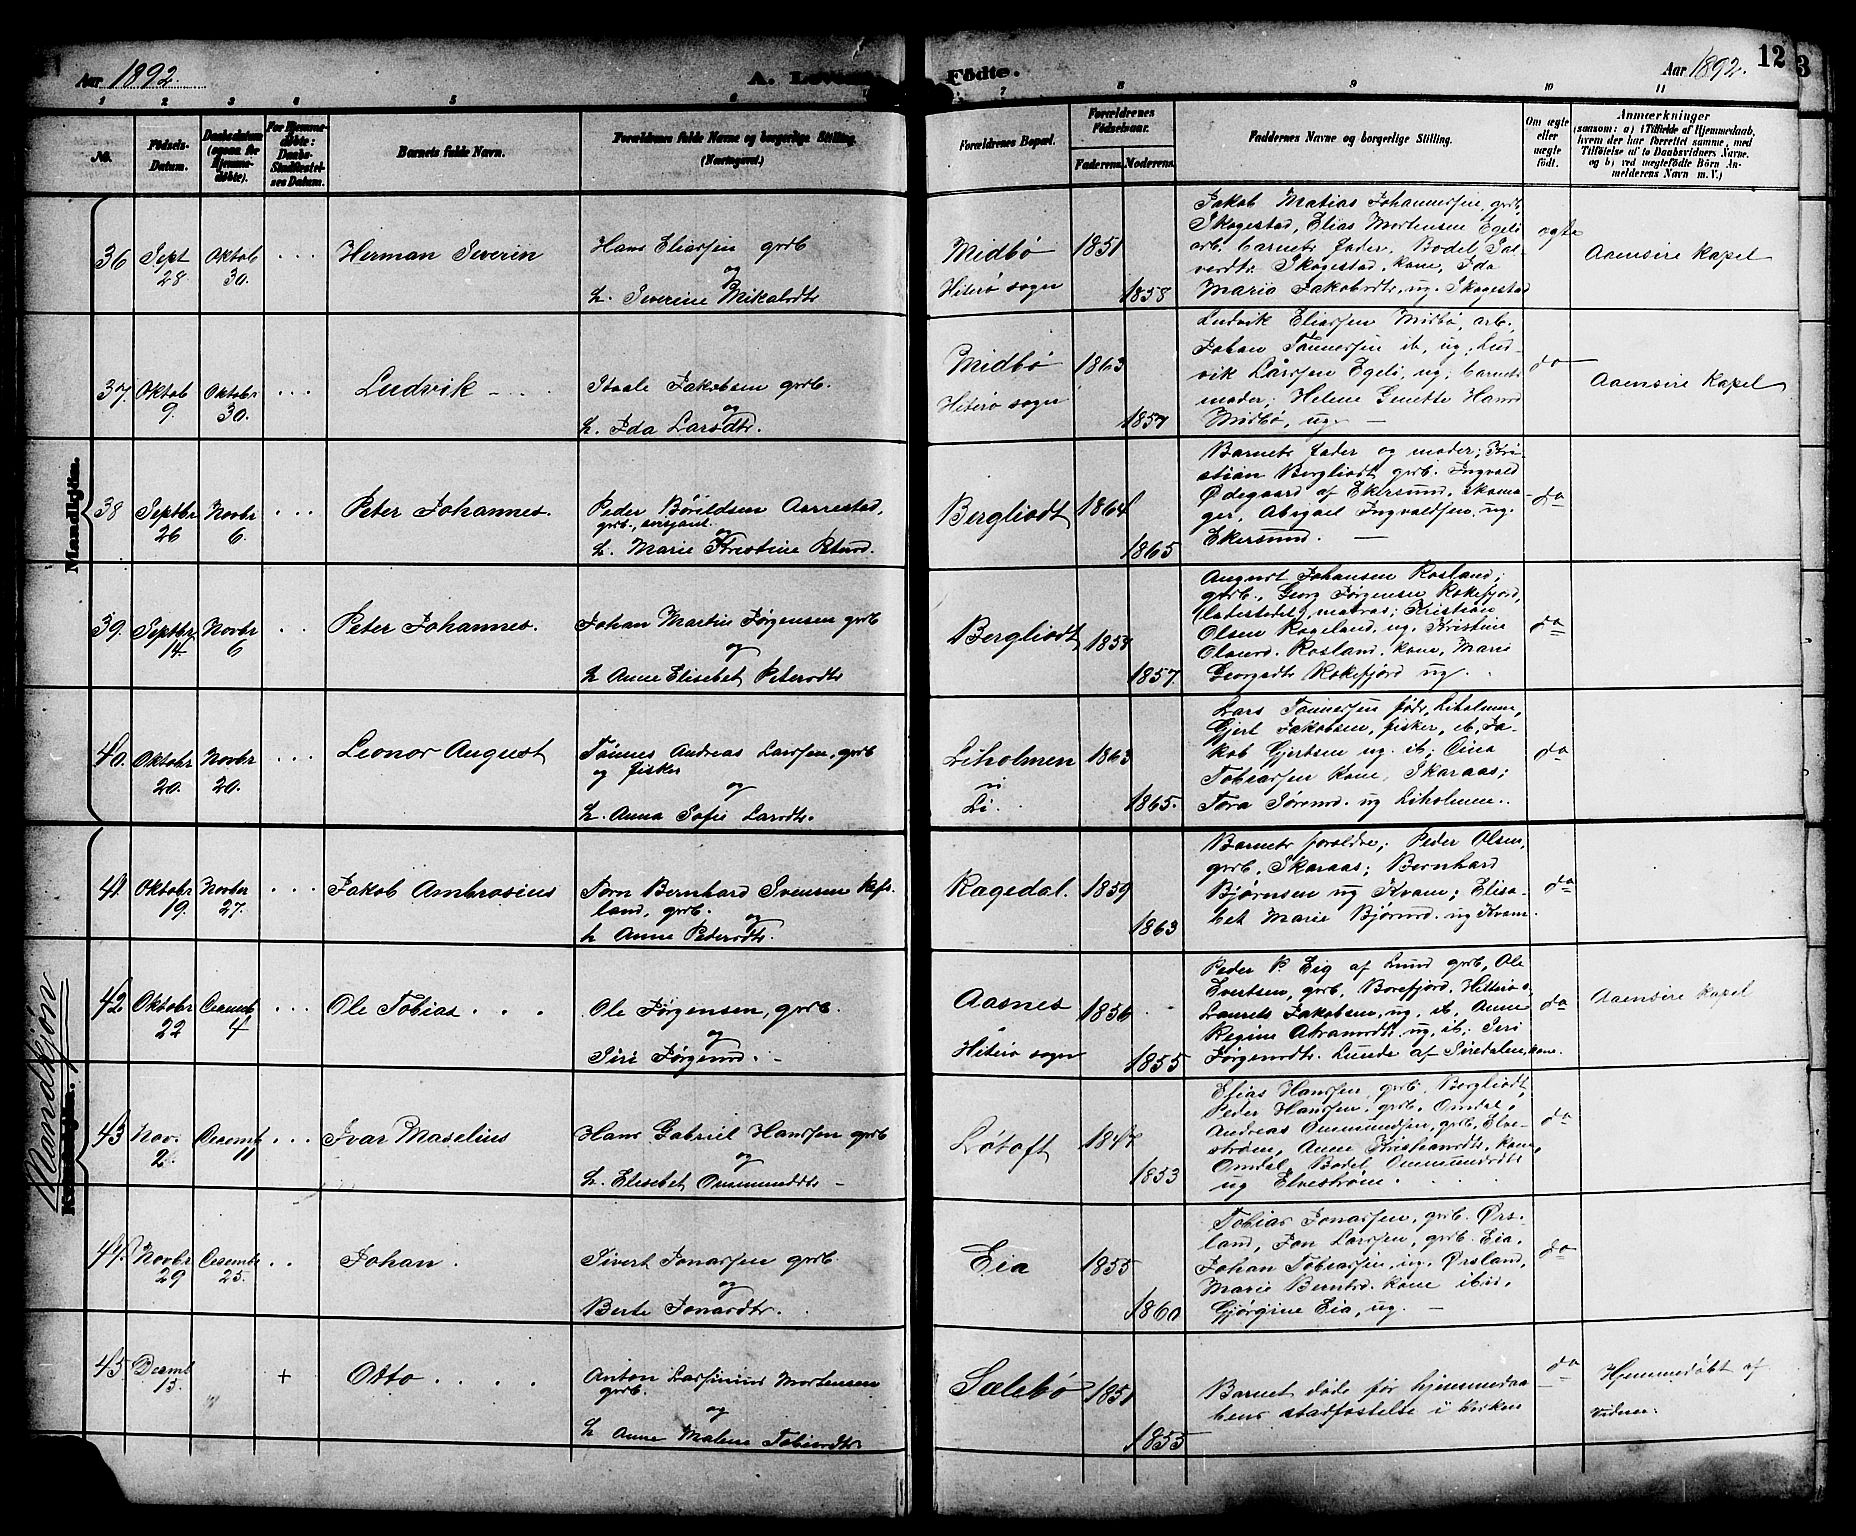 Aar 1892.
A. Levende
Födte.
Aar 1892.
12
3
1 2 3 4 5 6 7 8 9 10 11
No.
Fødsels-
Datum.
Daabsdatum
(ogsaa for
Hjemme-
døbte).
For Hjemme-
døbte:
Daabs-
Stadfæstel-
ses Datum.
Barnets fulde Navn.
Forældrenes fulde Navne og borgerlige Stilling.
Forældrenes Bopæl.
Forældrenes
Födselsaar.
Faderens.
Moderens.
Faddernes Navne og borgerlige Stilling.
Om ægte
eller
uægte
født.
Anmærkninger
(saasom: a) i Tilfælde af Hjemmedaab,
hvem der har forrettet samme, med
Tilföielse af to Daabsvidners Navne,
og b) ved uægtefödte Börn An-
melderens Navn m. V.)
Mandkjön.
Mandkjön
36
Sept
28
Oktob
30.
Herman Severin
Hans Eliassen grdb
og
h. Severine Mikalsdtr
Midbø
Hiterø sogn
1851
1858
Jakob Matias Johannessen, grdb,
Skogestad, Elias Mortensen Egeli
arb. barnets fader, Bodel Si-
vertdtr Skogestad, kone, Ida
Maria Jakobsdtr, ug. Skogestad
ægte
Aamsire Kapel
37.
Oktob
9.
Oktobr
30.
Ludvik
Staale Jakobsen grdb.
og
h. Ida Larsdtr.
Midbø
Hiterø sogn
1863
1857
Ludvik Eliassen Midbø, arb.,
Johan Tønnessen ib, ug, Lud-
vik Larssen Egeli, ug; barnets
moder; Helene Hansd
Midbø, ug.
do
Aamsire Kapel
38
Septbr
26
Novbr
6.
Peter Johannes.
Peder Bøildsen Aarrestad,
grdb., sersjant
og
h. Marie Kristine Petersd.
Bergliodt
1864
1865
Barnets fader og moder; Kri-
stian Bergliodt grdb. Ingvald
Ødegaard af Ekersund. Skoma-
ger, Abigael Ingvaldsen, ug.
Ekersund.
do
39.
Septbr
14.
Novbr
6
Peter Johannes.
Johan Martin Jørgensen grdb
og
h Anne Elisebet Petersdtr
Bergliodt
1857.
August Johansen Rosland;
grdb., Georg Jørgensen Rekefjord,
(ladestedet), matros; Kristian
Olsen Rageland, ug. Kristine
Olausd. Rosland. kone, Marie
Georgsdtr Rekefjord ug.
do
40.
Oktobr
20.
Novbr
20.
Leonor August
Tønnes Andreas Larssen, grdb
og fisker
og
h. Anna Sofie Larsdtr.
Liholmen
i
Li.
1863
1865.
Lars Tønnessen føder, Liholmen,
Gjert Jakobsen, fisker, ib, Ja-
kob Gjertsen ug. ib; Oina
Tobiassen Kone, Skaraas;
Tora Sørensd. ug Liholmen.
do
41.
Oktobr
19.
Novbr
27.
Jakob Ambrosius
Torn Bernhard Svensen Refs-
land, grdb.
og
h Anne Petersdtr.
Ragedal.
1859
1863
Barnets foreldre; Peder Olsen,
grdb, Skaraas; Bernhard
Bjørnsen ug Kvam; Elisa-
bet Marie Bjørnsd. ug Kvam
do
42.
Oktobr
22
Decemb
4
Ole Tobias
Ole Jørgensen, grdb.
og
Siri Jørgensd.
Aasnes
Hiterø sogn
1856
1855
Peder P Eig af Lund grdb, Ole
Evertsen, grdb, Borefjord. Hitterø
Laurets Jakobsen, ug, ib, Anne
Regine Abramsdtr, ug, ib. Siri
Jørgensdtr. Lunde af Siredalen, kone.
do
Aamsire Kapel
43
Nov.
2.
Decemb
11
Ivar Maselius
Hans Gabriel Hanssen grdb
og
h. Elisebet Ommundsdtr
Løtoft
1853
Elias Hanssen, grdb. Bergliodt,
Peder Hanssen, grdb. Omdal,
Andreas Ommundsen, grdb, Elve-
strøm, Anne Kristiansdtr, kone,
Omdal, Bodel Ommundsdtr
ug Elvestrøm.
do
44.
Novbr
29
Decembr
25.
Johan
Sivert Jonassen grdb.
og
Berte Jonasdtr.
Eia
1855
1860
Tobias Jonassen, grdb. Ørs-
land, Jon Larssen, grdb. Eia,
Johan Tobiassen, ug, Ørsland,
Marie Berntsd. kone ibid,
Gjørgine Eia, ug.
do
45
Decmb
15.
+
Otto
Anton Mortensen
grdb.
og
h Anne Malene Tobiasdtr
Sælebø
1851
1855
Barnet døde før hjemmedaa-
bens stadfæstelse i kirken
do
Hjemmedøbt af